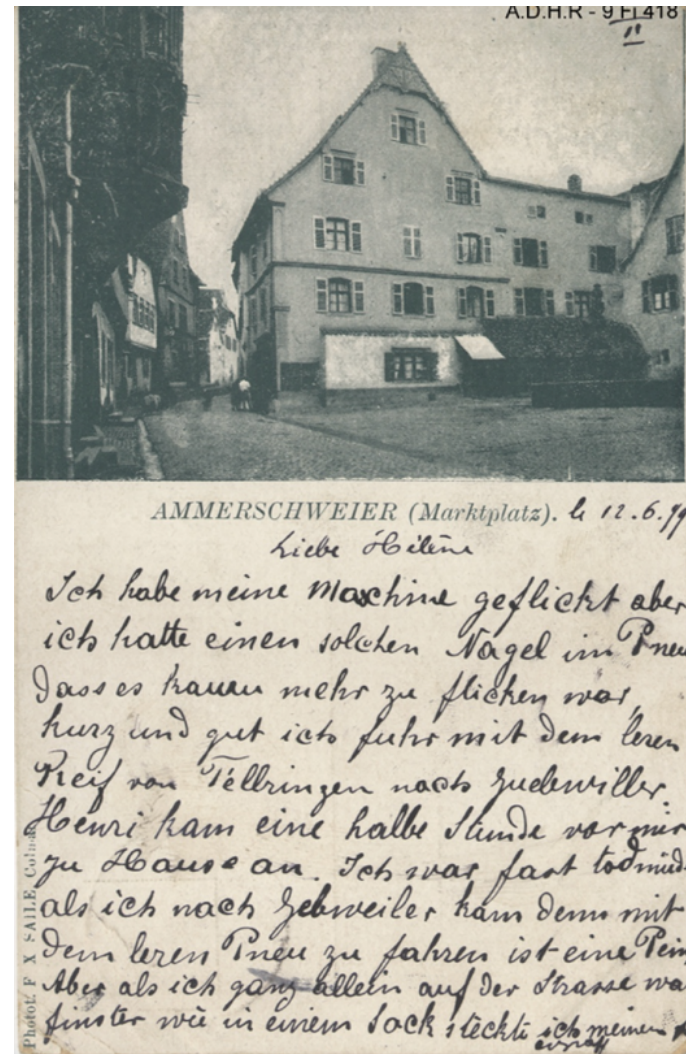 A.D.H.R - 9 FI 418
II
AMMERSCHWEIER (Marktplatz). le 12.6.99
Liebe Hélène
Ich habe meine Maschine geflickt aber
ich hatte einen solchen Nagel im Pneu
dass es kaum mehr zu flicken war,
kurz und gut ich fuhr mit dem leren
Reif von nach
Henri kam eine halbe Stunde vor mir
zu Hause an. Ich war fast todmüd
als ich nach Gebweiler kam denn mit
dem leren Pneu zu fahren ist eine Pein
Aber als ich ganz allein auf der Strasse wa
finster wie in einem Sack steckte ich meinen
Photot. F X SAILE, Colmar